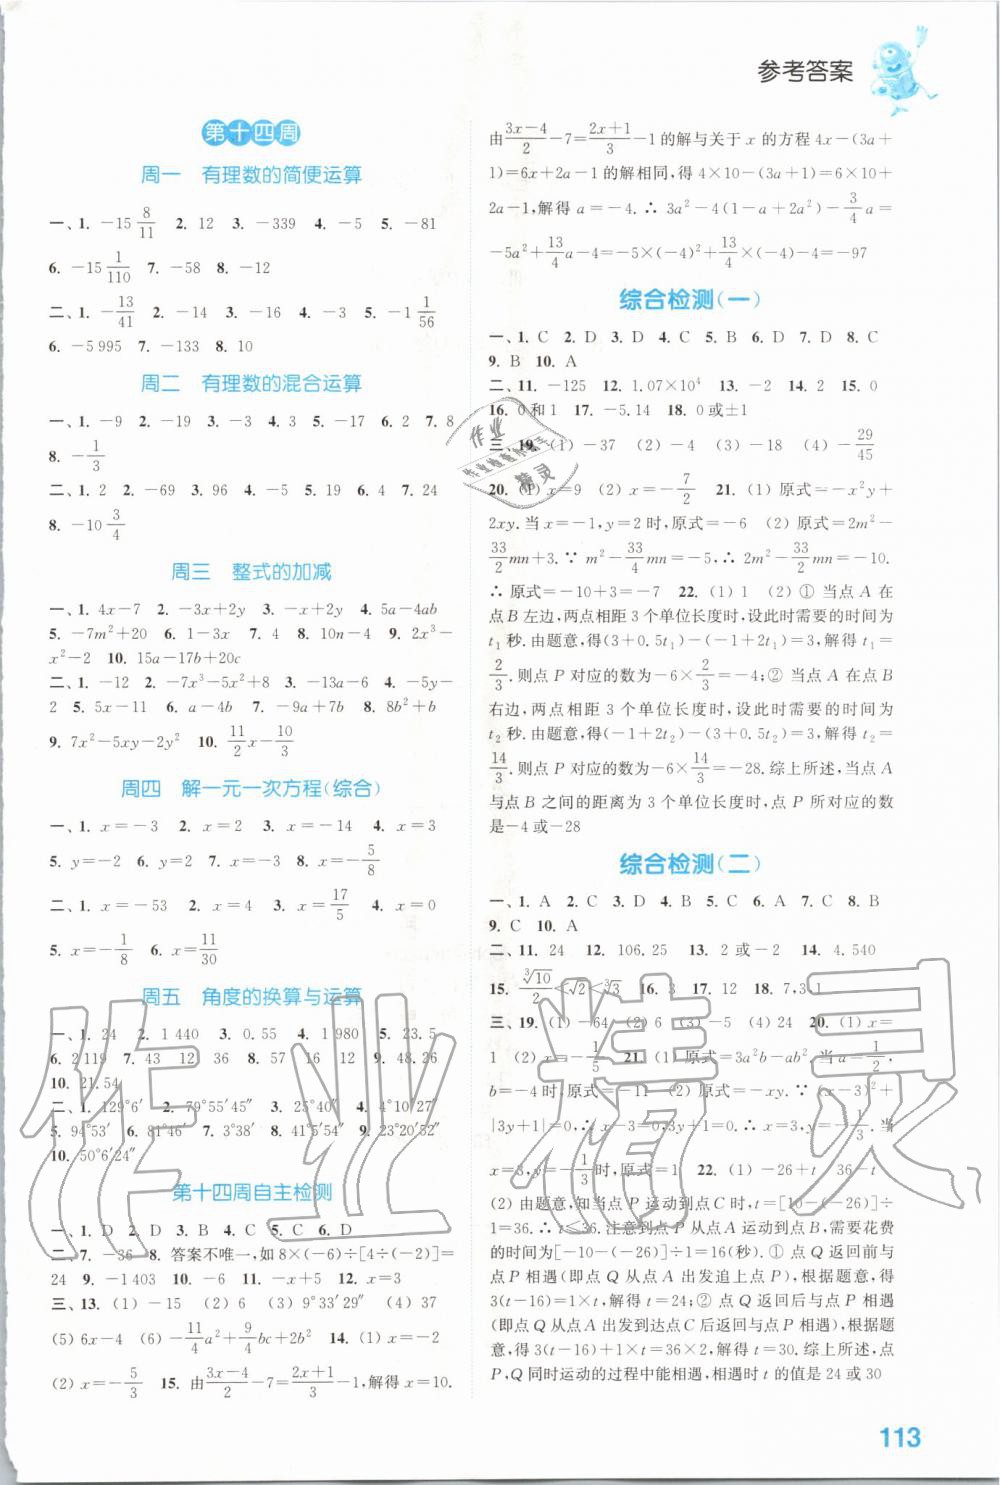 参考答案
第十四周
周一 有理数的简便运算
一、1. −15 8/11 2. 12 3. −339 4. −5 5. −81
6. −15 1/110 7. −58 8. −12
二、1. −13/41 2. −14 3. −16 4. −3 5. −1 1/56
6. −5 995 7. −133 8. 10
周二 有理数的混合运算
一、1. −9 2. −19 3. −3 5. −17 6. 2 7. 8
8. −1/3
二、1. 2 2. −69 3. 96 4. −5 5. 19 6. 4 7. 24
8. −10 3/4
周三 整式的加减
一、1. 4x−7 2. −3x+2y 3. −x−6 4. 5a−4ab
5. −7m²+20 6. 1−3x 7. 4 8. 10n−m 9. 2x³−
x²−2 10. 15a−17b+20c
二、1. −12 2. −7x³−5x²+8 3. −13a−6 4. −5y−
2 5. 5x−11 6. a−4b 7. −9a+7b 8. 8b²+b
9. 7x²−5xy−2y² 10. 11/2x−10/3
周四 解一元一次方程(综合)
一、1. x=−3 2. x=2 3. x=−14 4. x=3
5. y=−2 6. y=2 7. x=−3 8. x=−5/8
二、1. x=−53 2. x=4 3. x=17/5 4. x=0
5. x=−1/8 6. x=11/30
周五 角度的换算与运算
一、1. 24 2. 1 440 3. 0.55 4. 1 980 5. 23.5
6. 2 119 7. 43 12 36 8. 57 16 12 9. 48.26
10. 21.54
二、1. 129°6′ 2. 79°55′45″ 3. 25°40′ 4. 4°10′27″
5. 94°53′ 6. 81°46′ 7. 3°38′ 8. 41°5′54″ 9. 23°20′52″
10. 50°6′24″
第十四周自主检测
一、1. D 2. D 3. B 4. C 5. C 6. D
二、7. −36 8. 答案不唯一,如 8×(−6)÷[4÷(−2)]=
24 9. −1 403 10. −6 11. −x+5 12. x=3
三、13. (1) −15 (2) 6 (3) 9°33′29″ (4) 37
(5) 6x−4 (6) −11/4a²+9/4bc+2b² 14. (1) x=−2
(2) x=−5/3 15. 由(3x−4)/2−7=(2x+1)/3−1,解得 x=10.
由(3x−4)/2−7=(2x+1)/3−1 的解与关于 x 的方程 4x−(3a+
1)=6x+2a−1 的解相同,得 4×10−(3a+1)=6×10+
2a−1,解得 a=−4.∴ 3a²−4(1−a+2a²)−3/4a=
−5a²+13/4a−4=−5×(−4)²+13/4×(−4)−4=−97
综合检测(一)
一、1. C 2. D 3. D 4. C 5. B 6. D 7. D 8. C
9. B 10. A
二、11. −125 12. 1.07×10⁴ 13. −2 14. 2 15. 0
16. 0 和 1 17. −5.14 18. 0 或±1
三、19. (1) −37 (2) −4 (3) −18 (4) −29/45
20. (1) x=9 (2) x=−7/2 21. (1) 原式=−x²y+
2xy. 当 x=−1,y=2 时,原式=−6 (2) 原式=2m²−
33/2mn+3. ∵ m²−33/4mn=−5,∴ 2m²−33/2mn=−10.
∴ 原式=−10+3=−7 22. (1) 1 (2) ① 当点 A 在
点 B 左边,两点相距 3 个单位长度时,设此时需要的时间为
t₁ 秒. 由题意,得(3+0.5t₁)−(−1+2t₁)=3,解得 t₁=
2/3. 则点 P 对应的数为−6×2/3=−4;② 当点 A 在点 B
右边,两点相距 3 个单位长度时,设此时需要的时间为
t₂ 秒. 由题意,得(−1+2t₂)−(3+0.5t₂)=3,解得 t₂=
14/3. 则点 P 对应的数为−6×14/3=−28. 综上所述,当点 A
与点 B 之间的距离为 3 个单位长度时,点 P 所对应的数
是−4 或−28
综合检测(二)
一、1. A 2. C 3. D 4. B 5. C 6. A 7. C 8. B
9. C 10. A
二、11. 24 12. 106.25 13. 2 或−2 14. 4.540
15. ∛10/2<√2<∛3 16. 3 17. 112 18. 7,3,1
三、19. (1) −64 (2) 6 (3) −5 (4) 24 20. (1) x=
1 (2) x=−1/5 21. (1) 原式=3a²b−ab². 当 a=1/2,
b=−4 时,原式=−11 (2) 原式=−xy. ∵ (x−3)²+
|3y+1|=0,∴ x−3=0,3y+1=0,∴ x=3,y=−1/3. 当
x=3,y=−1/3时,原式=1 22. (1) −26+t 36−t
(2) 由题意,知当点 P 运动到点 C 时,t=[10−(−26)]÷
1=36.∴ t≤36. 注意到点 P 从点 A 运动到点 B,需要花费
的时间为[−10−(−26)]÷1=16(秒). ① 点 Q 返回前与
点 P 相遇(即点 Q 从点 A 出发追上点 P),根据题意,得
3(t−16)=1×t,解得 t=24;② 点 Q 返回后与点 P 相遇
(即点 Q 从点 A 出发到达点 C 后返回与点 P 相遇),根据题
意,得 3(t−16)+1×t=36×2,解得 t=30. 综上所述,点
P,Q 同时运动的过程中能相遇,相遇时 t 的值是 24 或 30
113
作业精灵
作业
作业检查小帮手
精灵